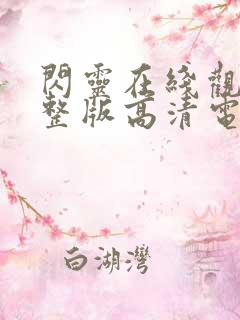 閃靈在綫觀
整版高清電
白湖灣